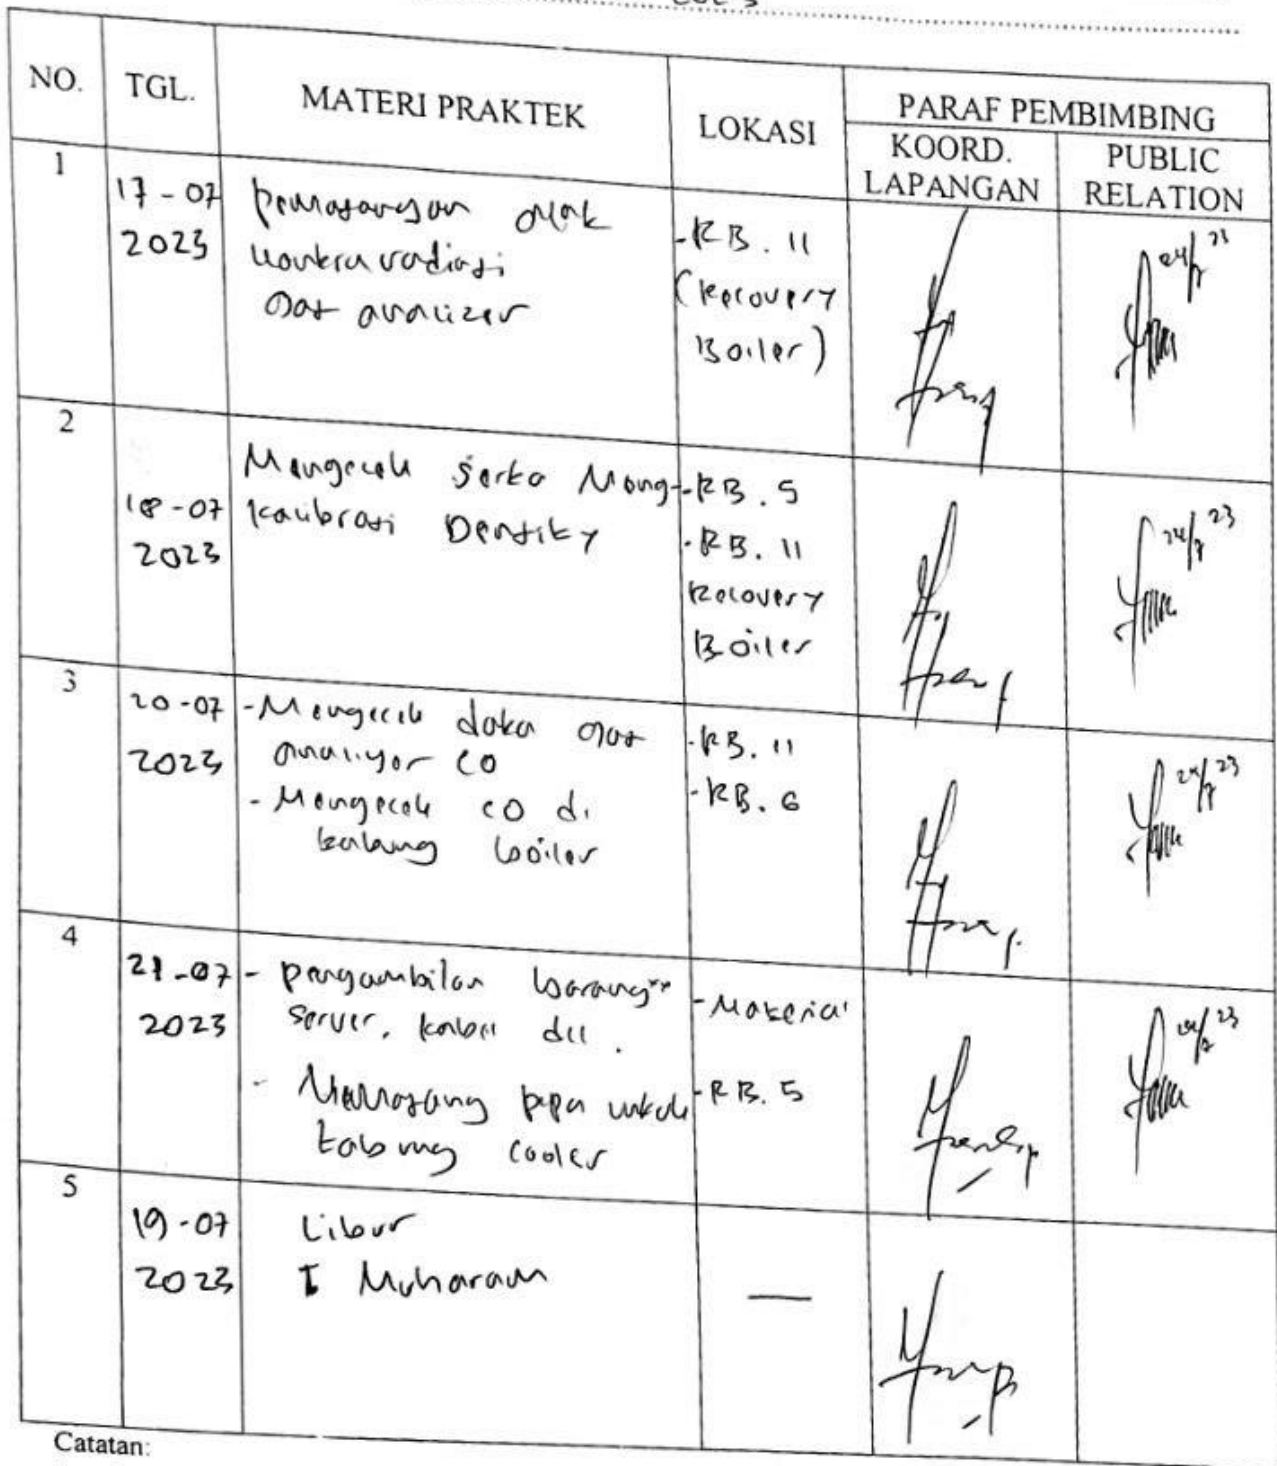 NO. TGL. MATERI PRAKTEK LOKASI PARAF PEMBIMBING
KOORD. LAPANGAN PUBLIC RELATION
1
17-07
2023
pemasangan
gas analizer
-RB. 11
(Recovery
Boiler)
24/7 23
2
18-07
2023
Mengecek serta Meng-
kalibrasi Density
-RB. 5
-RB. 11
Recovery
Boiler
24/7 23
3
20-07
2023
-Mengecek data gas
analiyer CO
-Mengecek CO di
tabung boiler
-RB. 11
-RB. 6
24/7 23
4
21-07
2023
- pengambilan barang"
server, kabel dll.
- Memasang pipa untuk
tabung cooler
-Material
-RB. 5
24/7 23
5
19-07
2023
Libur
1 Muharam
—
Catatan: